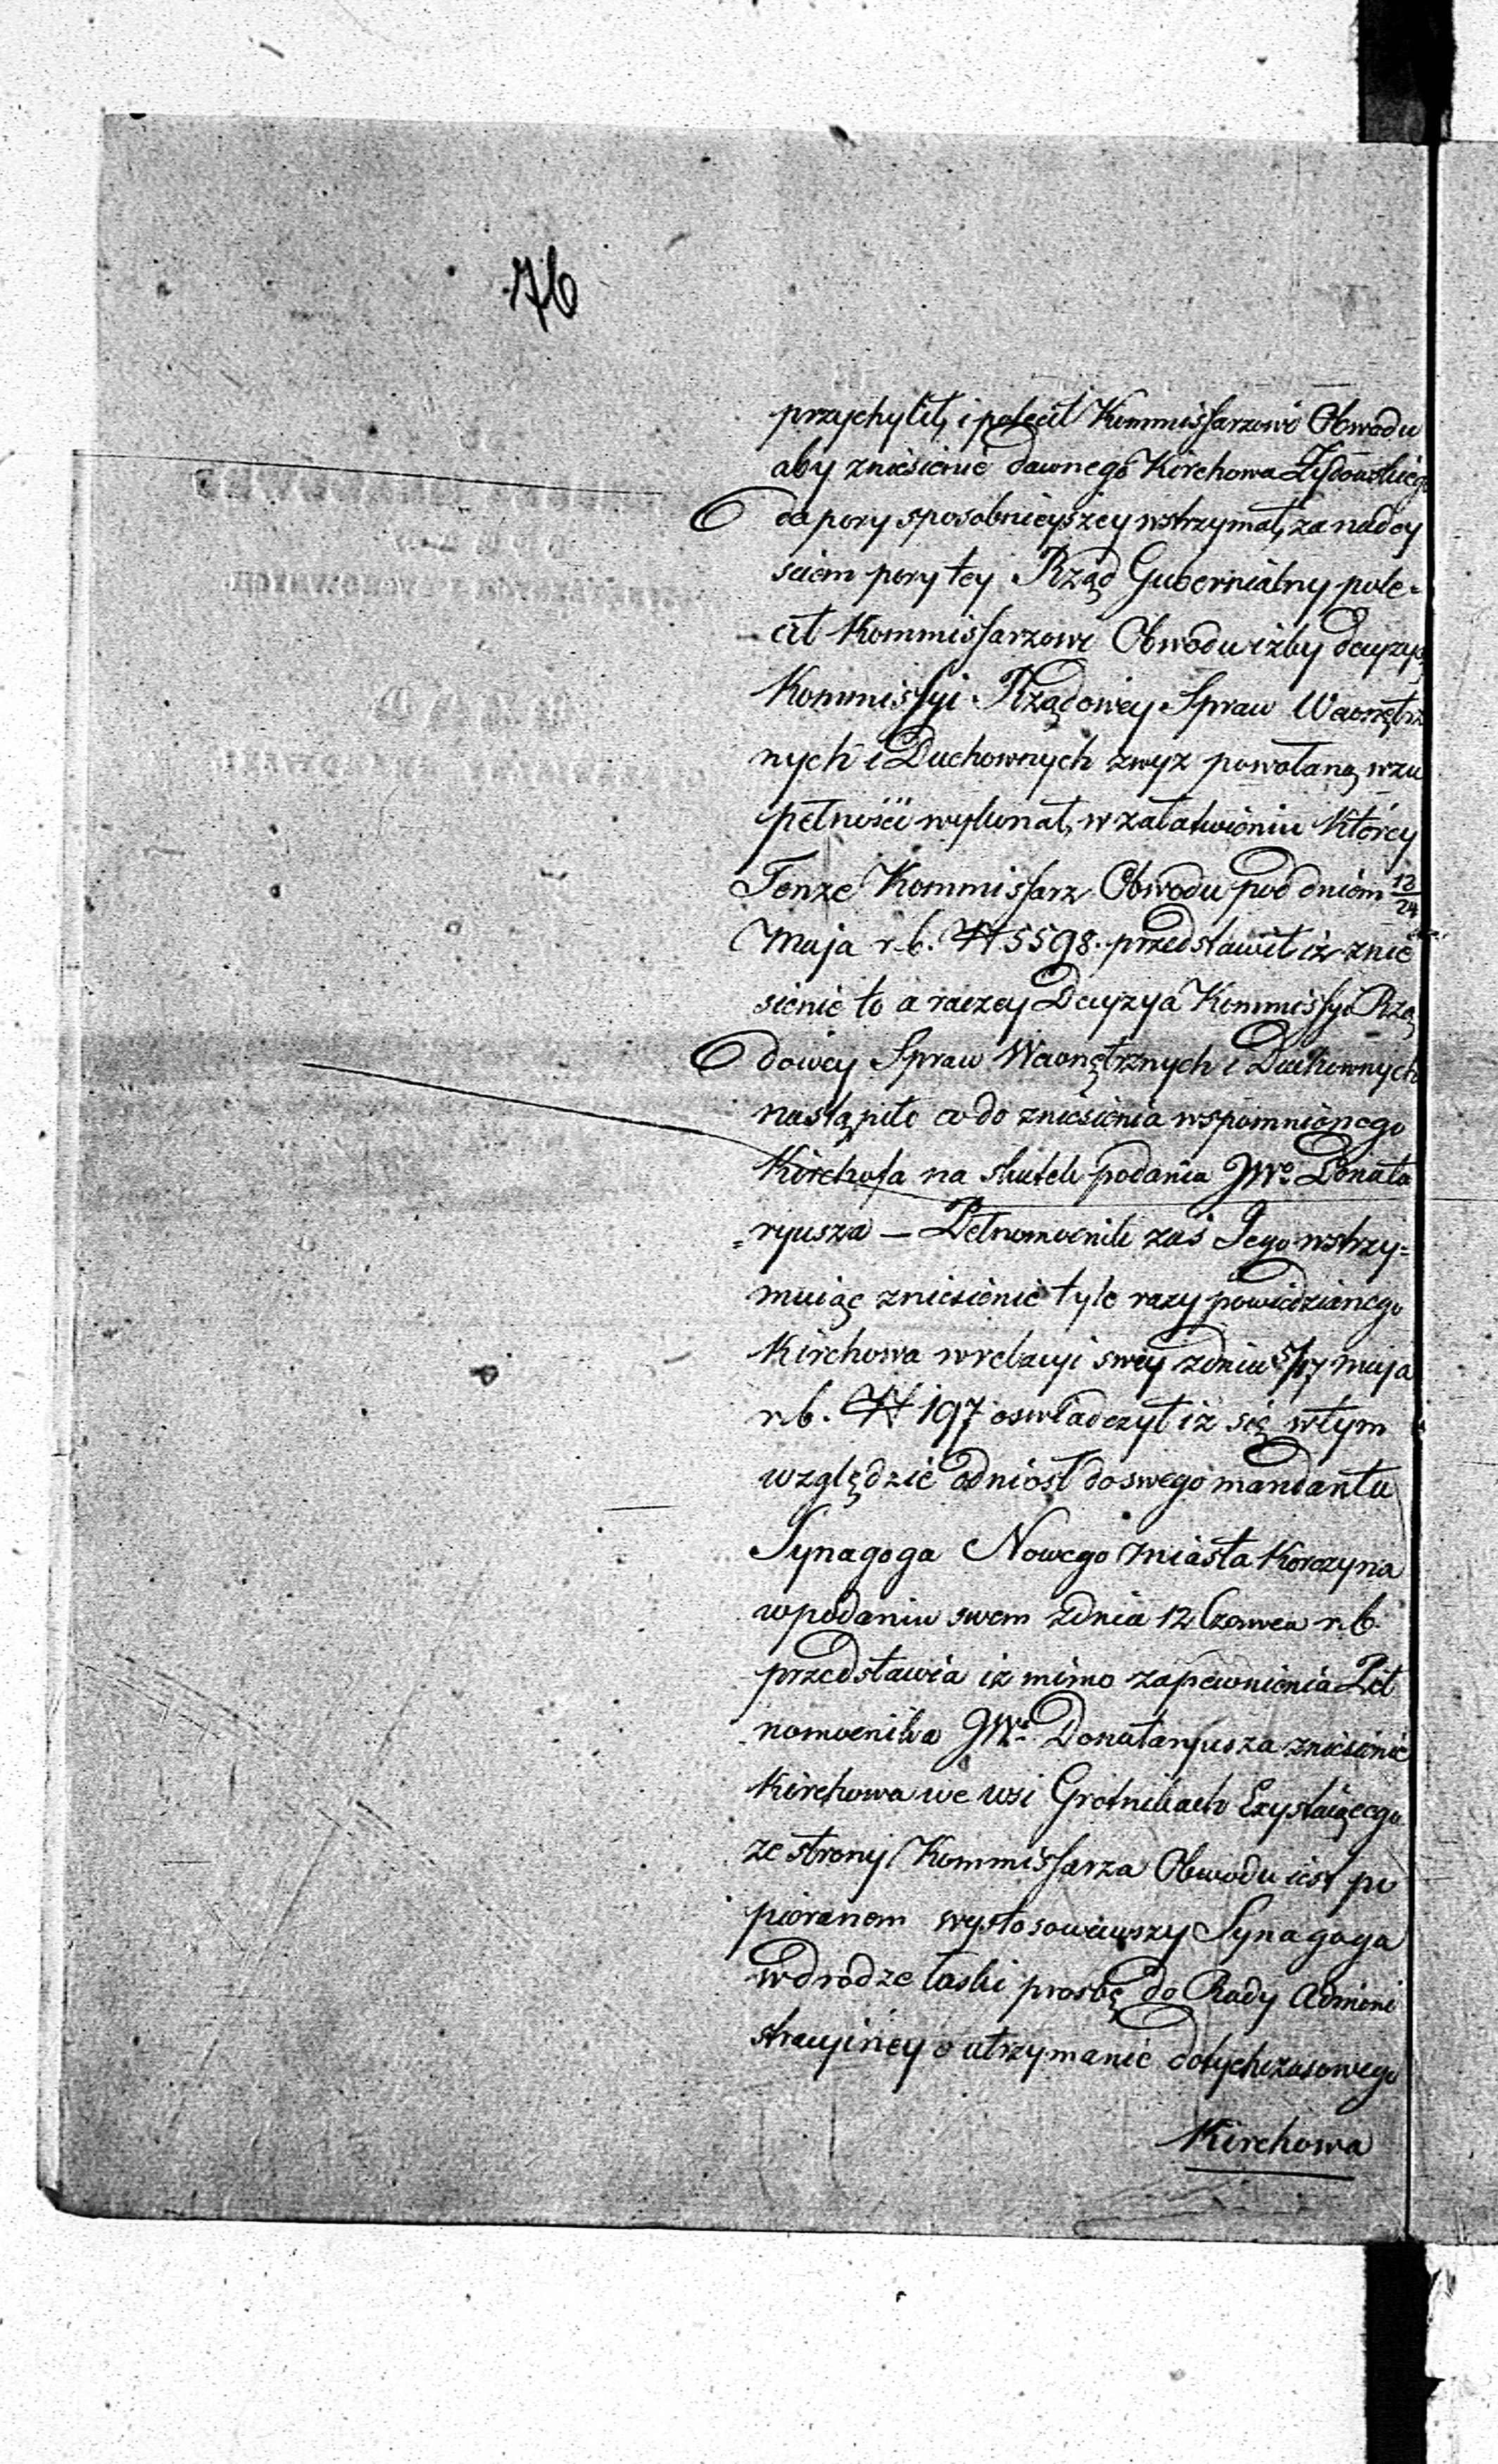 76
przychylił, i polecił Kommissarzowi Obwodu
aby zniesienie dawnego Kirchowa Żydowskiego
do pory sposobnieyszey wstrzymał, za nadey
sciem pory tey Rząd Gubernialny pole-
cił Kommissarzowi Obwodu iżby decyzyą
Kommissyi Rządowey Spraw Wewnętrz
nych i Duchownych zwyż powołaną wzu
pełności wykonał, w załatwieniu którey
Tenże Kommissarz Obwodu pod dniem 12/24
Maja r. b. N 5598. przedstawił iż znie
sienie to a raczey Decyzya Kommissyi Rzą
dowey Spraw Wewnętrznych i Duchownych
nastąpiło co do zniesienia wspomnionego
Kirchofa na skutek podania JWo. Donata
=ryusza — Pełnomocnik zaś Jego wstrzy=
muiąc zniesienie tyle razy powiedzianego
Kirchowa w relacyi swey z dnia 5/17 Maja
r. b. N 197 oswładczył iż się w tym
względzie odniosł do swego mandanta
Synagoga Nowego Miasta Korczyna
w podaniu swem z dnia 12 Czerwca r. b.
przedstawia iż mimo zapewnienia Peł
nomocnika JWo. Donataryusza zniesienie
Kirchowa we wsi Grotnikach Exystuiącego
ze strony Kommissarza Obwodu iest po
pieranem wystosowawszy Synagoga
w drodze łaski prosbę do Rady Admini
stracyiney o utrzymanie dotychczasowego
Kirchowa